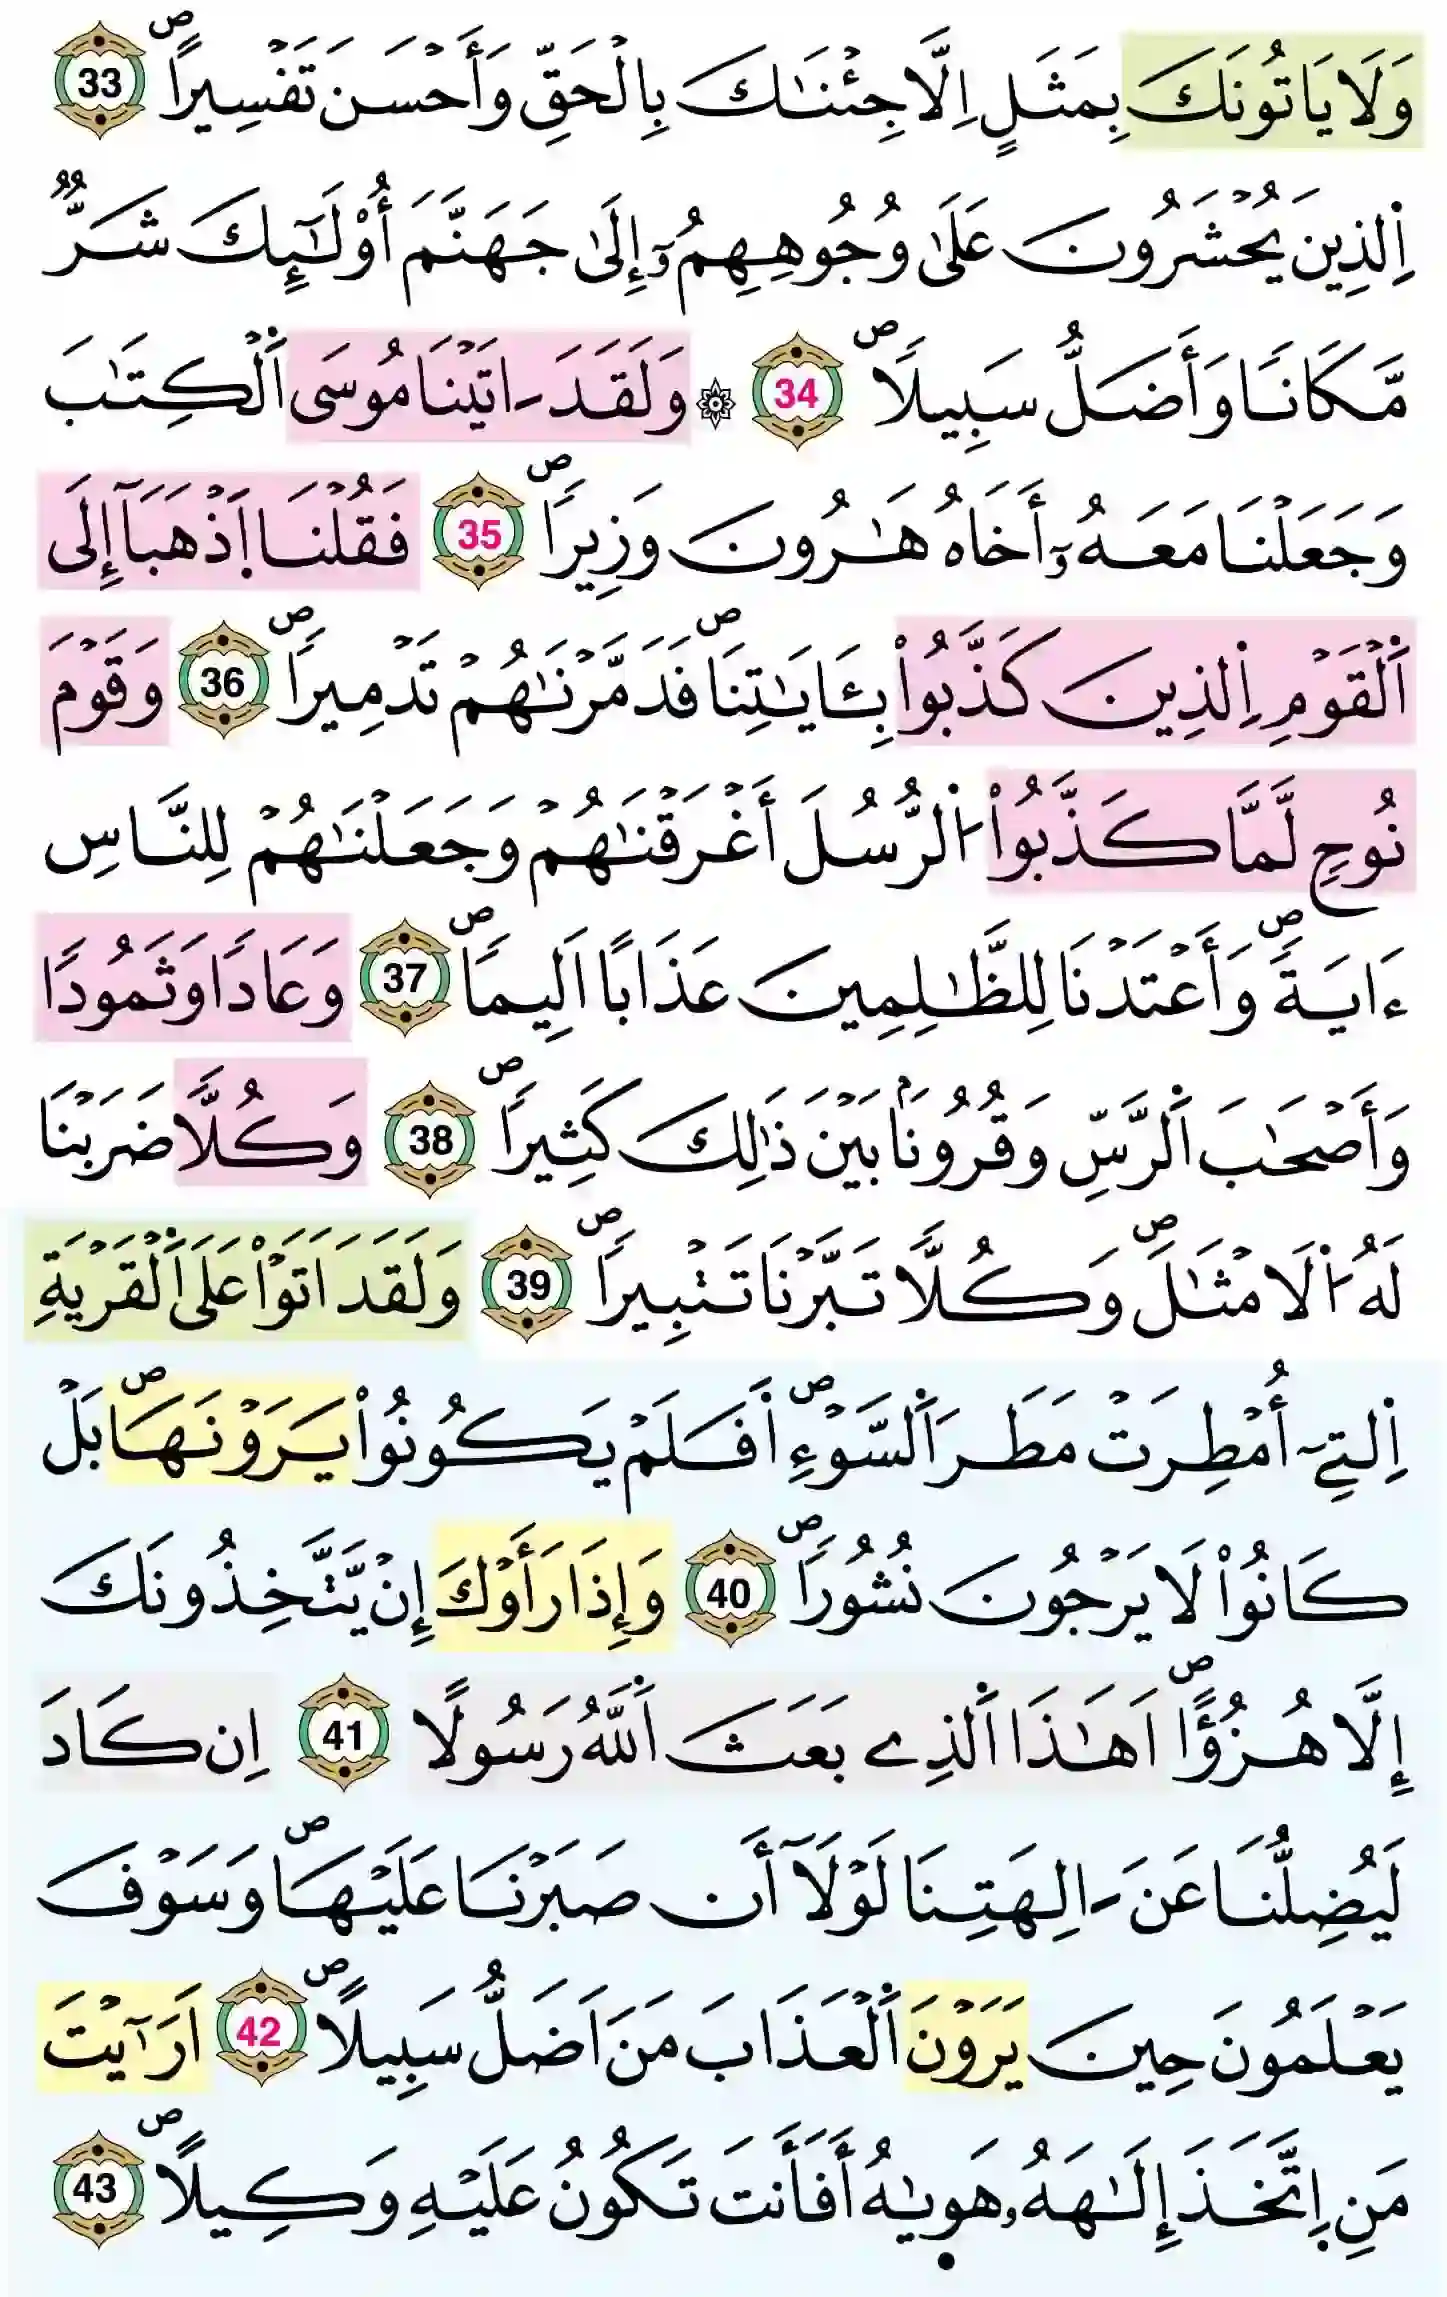 وَلَا يَاتُونَكَ بِمَثَلٍ اِلَّا جِئْنَٰكَ بِالْحَقِّ وَأَحْسَنَ تَفْسِيراًۖ 33
اِ۬لذِينَ يُحْشَرُونَ عَلَىٰ وُجُوهِهِمُۥٓ إِلَىٰ جَهَنَّمَ أُوْلَٰٓئِكَ شَرّٞ
مَّكَاناٗ وَأَضَلُّ سَبِيلاٗۖ 34 ۞ وَلَقَدَ ـاتَيْنَا مُوسَى اَ۬لْكِتَٰبَ
وَجَعَلْنَا مَعَهُۥٓ أَخَاهُ هَٰرُونَ وَزِيراٗۖ 35 فَقُلْنَا اَ۪ذْهَبَآ إِلَى
اَ۬لْقَوْمِ اِ۬لذِينَ كَذَّبُواْ بِـَٔايَٰتِنَاۖ فَدَمَّرْنَٰهُمْ تَدْمِيراٗۖ 36 وَقَوْمَ
نُوحٖ لَّمَّا كَذَّبُواْ اُ۬لرُّسُلَ أَغْرَقْنَٰهُمْ وَجَعَلْنَٰهُمْ لِلنَّاسِ
ءَايَةٗۖ وَأَعْتَدْنَا لِلظَّٰلِمِينَ عَذَاباً اَلِيماٗۖ 37 وَعَاداٗ وَثَمُوداٗ
وَأَصْحَٰبَ اَ۬لرَّسِّ وَقُرُوناَۢ بَيْنَ ذَٰلِكَ كَثِيراٗۖ 38 وَكُلّاٗ ضَرَبْنَا
لَهُ اُ۬لَامْثَٰلَۖ وَكُلّاٗ تَبَّرْنَا تَتْبِيراٗۖ 39 وَلَقَدَ اَتَوْاْ عَلَى اَ۬لْقَرْيَةِ
اِ۬لتِےٓ أُمْطِرَتْ مَطَرَ اَ۬لسَّوْءِۖ اَ۬فَلَمْ يَكُونُواْ يَرَوْنَهَاۖ بَلْ
كَانُواْ لَا يَرْجُونَ نُشُوراٗۖ 40 وَإِذَا رَأَوْكَ إِنْ يَّتَّخِذُونَكَ
إِلَّا هُزُؤاًۖ اَهَٰذَا اَ۬لذِے بَعَثَ اَ۬للَّهُ رَسُولاً 41 اِن كَادَ
لَيُضِلُّنَا عَنَ ـالِهَتِنَا لَوْلَآ أَن صَبَرْنَا عَلَيْهَاۖ وَسَوْفَ
يَعْلَمُونَ حِينَ يَرَوْنَ اَ۬لْعَذَابَ مَنَ اَضَلُّ سَبِيلاًۖ 42 اَرَٰٓيْتَ
مَنِ اِ۪تَّخَذَ إِلَٰهَهُۥ هَوِيٰهُ أَفَأَنتَ تَكُونُ عَلَيْهِ وَكِيلاًۖ 43